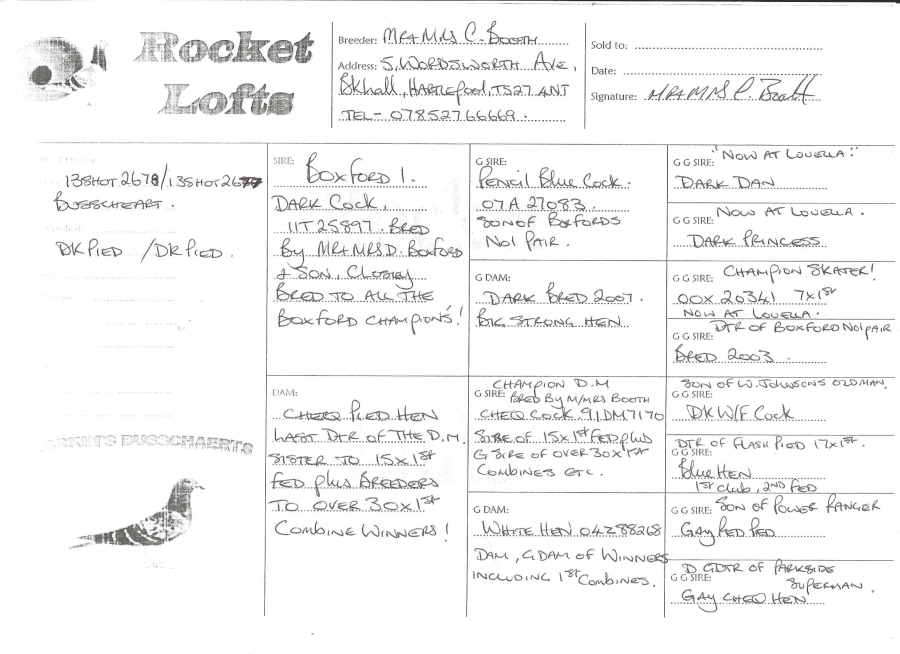 Rocket
Lofts
Breeder: MR+MRS C. BOOTH
Address: 5, WORDSWORTH AVE,
BKhall, HARTLEPOOL, TS27 4NT
TEL- 07852766669.
Sold to:
Date:
Signature: MR+MRS C. Booth
138HOT 2678/138HOT
BUSSCHEART.
DK PIED / DK PIED.
BUSSCHAERTS
SIRE:
BOXFORD 1.
DARK COCK.
11T 25897. BRED
By MR+MRS. D. BOXFORD
+ SON. CLOSELY
BRED TO ALL THE
BOXFORD CHAMPIONS!
DAM:
CHEQ PIED HEN
LAST DTR OF THE D.M.
SISTER TO 15X1st
FED plus BREEDERS
TO OVER 30X1st
COMBINE WINNERS!
G SIRE:
PENCIL BLUE COCK.
07A 27083.
SON OF BOXFORDS
NO1 PAIR.
G DAM:
DARK BRED 2007.
BIG STRONG HEN
CHAMPION D.M
G SIRE: BRED BY M/MRS BOOTH
CHEQ COCK. 91DM7170
SIRE OF 15X1st FED plus
G SIRE OF OVER 30X1st
COMBINES ETC.
G DAM:
WHITE HEN 04Z88268
DAM, G DAM OF WINNERS
INCLUDING 1st COMBINES.
"NOW AT LOUELLA."
G G SIRE:
DARK DAN
NOW AT LOUELLA.
G G SIRE:
DARK PRINCESS
G G SIRE: CHAMPION SKATER!
00X 20341 7X1st
NOW AT LOUELLA.
DTR OF BOXFORD NO1 PAIR
G G SIRE:
BRED 2003.
SON OF W. JOHNSONS OLD MAN.
G G SIRE:
DK W/F COCK
DTR OF FLASH PIED 17X1st.
G G SIRE:
BLUE HEN
1st CLUB, 2ND FED
G G SIRE: SON OF POWER RANGER
GAY RED PIED
D GDTR OF PARKSIDE
G G SIRE: SUPERMAN.
GAY CHEQ HEN